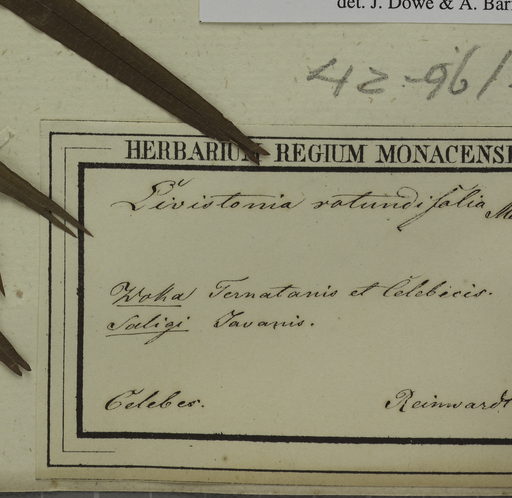 det. J. Dowe & A. Barf
42-96/
HERBARIUM REGIUM MONACENSE
Livistonia rotundifolia Ma
Woka Ternatanis et Celebicis.
Saligi Javanis.
Celebes. Reinwardt